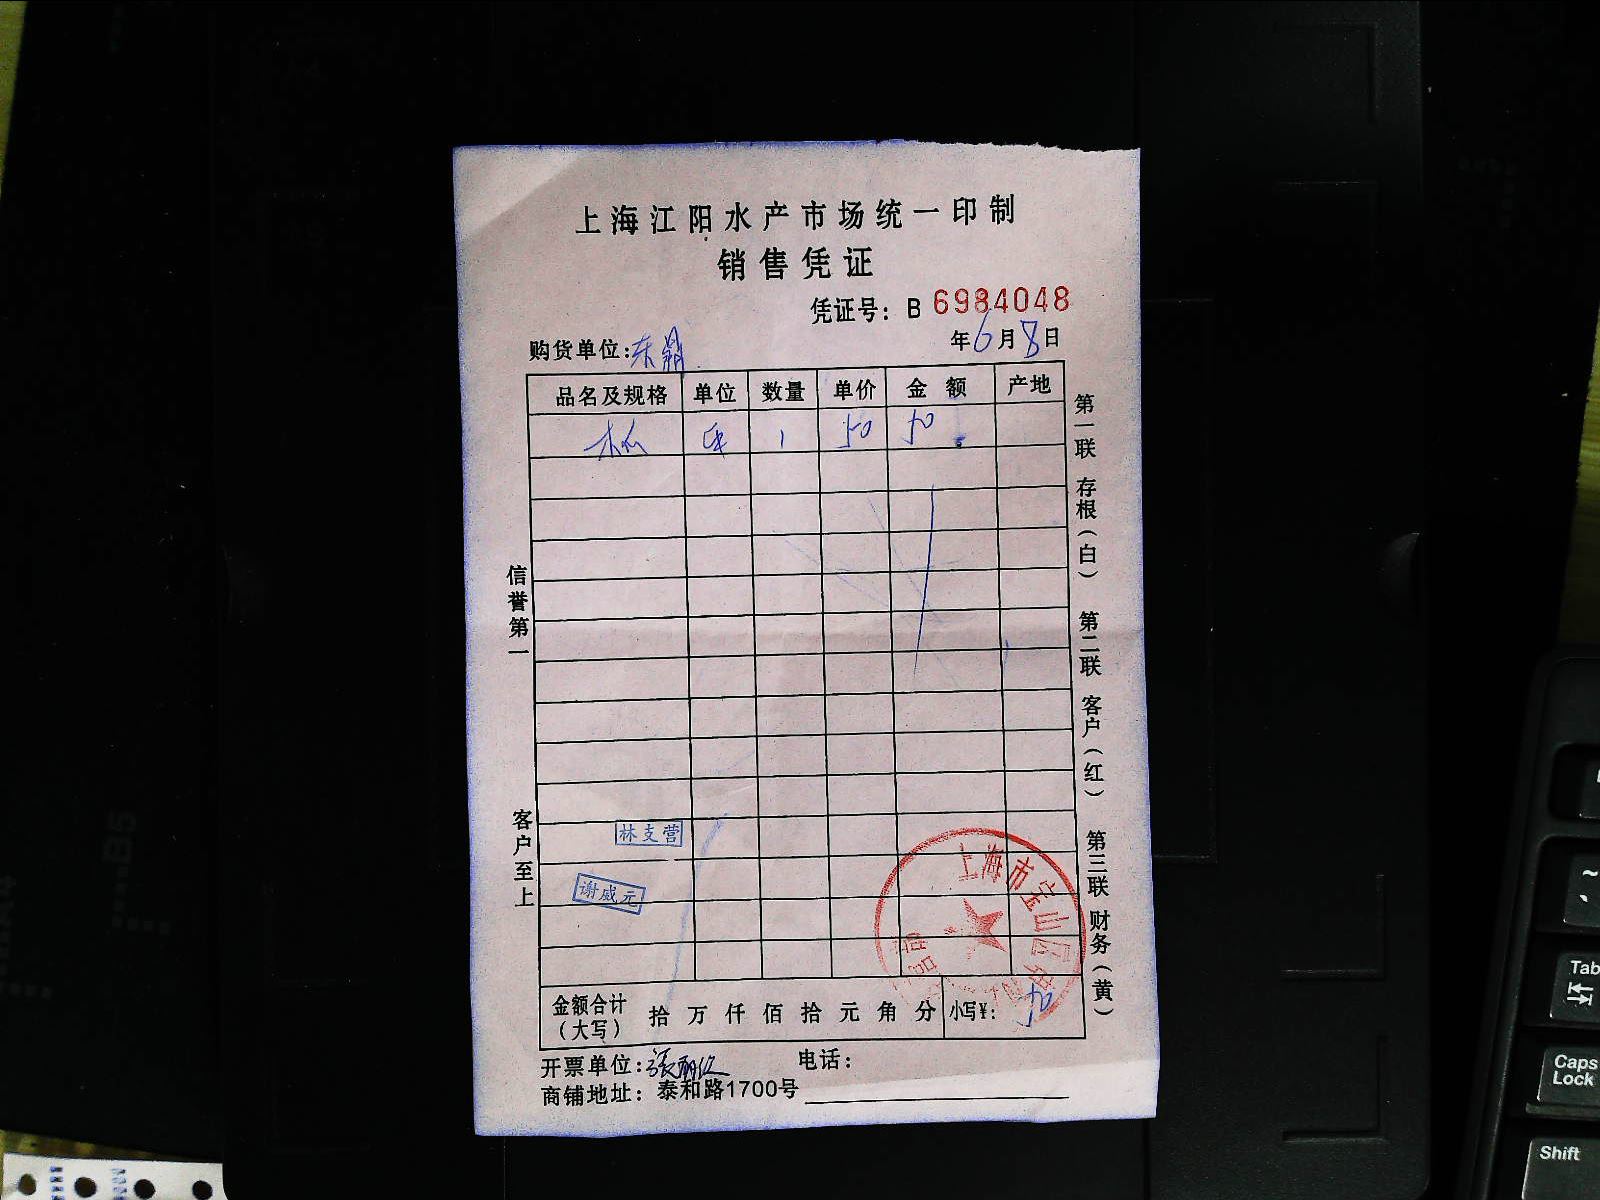 上海江阳水产市场统一印制
销售凭证
凭证号：B 6984048
购货单位：东鼎 年6月8日
品名及规格 单位 数量 单价 金额 产地
木瓜 1 50 50
第一联 存根（白） 第二联 客户（红） 第三联 财务（黄）
信誉第一
客户至上
林支营
谢威元
上海市宝山区
金额合计（大写） 拾万仟佰拾元角分 小写¥：50
开票单位：张 电话：
商铺地址：泰和路1700号
B5
A4
~
Tab
Caps Lock
Shift